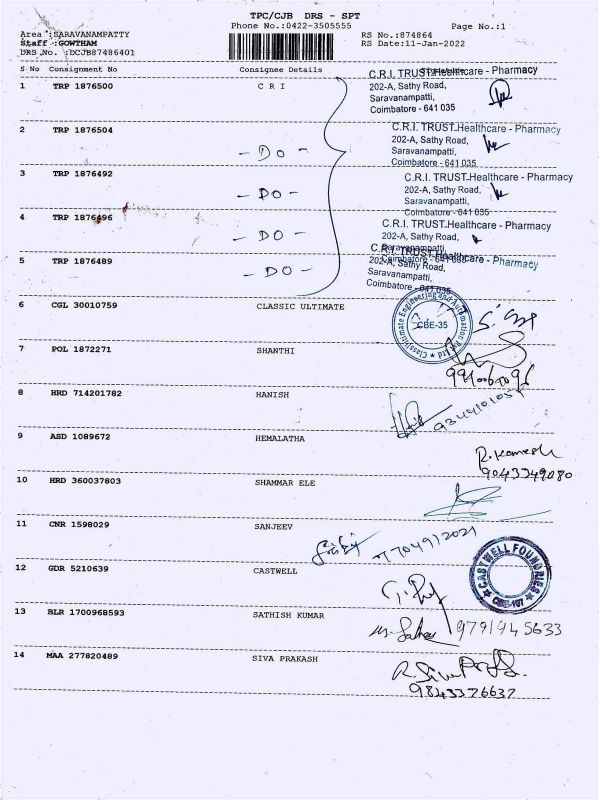 TPC/CJB DRS - SPT
Phone No.:0422-3505555
Page No.:1
Area :SARAVANAMPATTY
Staff :GOWTHAM
DRS No. :DCJB87486401
RS No.:874864
RS Date:11-Jan-2022
S No Consignment No Consignee Details
1 TRP 1876500 C R I
C.R.I. TRUST Healthcare - Pharmacy
202-A, Sathy Road,
Saravanampatti,
Coimbatore - 641 035
2 TRP 1876504 - DO -
C.R.I. TRUST Healthcare - Pharmacy
202-A, Sathy Road,
Saravanampatti,
Coimbatore - 641 035
3 TRP 1876492 - DO -
C.R.I. TRUST Healthcare - Pharmacy
202-A, Sathy Road,
Saravanampatti,
Coimbatore - 641 035
4 TRP 1876496 - DO -
C.R.I. TRUST Healthcare - Pharmacy
202-A, Sathy Road,
Saravanampatti,
Coimbatore - 641 035
5 TRP 1876489 - DO -
C.R.I. TRUST Healthcare - Pharmacy
202-A, Sathy Road,
Saravanampatti,
Coimbatore - 641 035
6 CGL 30010759 CLASSIC ULTIMATE
CBE-35
7 POL 1872271 SHANTHI
8 HRD 714201782 HANISH
9 ASD 1089672 HEMALATHA
R. Kamesh
9043349080
10 HRD 360037803 SHAMMAR ELE
11 CNR 1598029 SANJEEV
12 GDR 5210639 CASTWELL
CASTWELL FOUNDRIES
CBE-107
13 BLR 1700968593 SATHISH KUMAR
9791945633
14 MAA 277820489 SIVA PRAKASH
9843376637